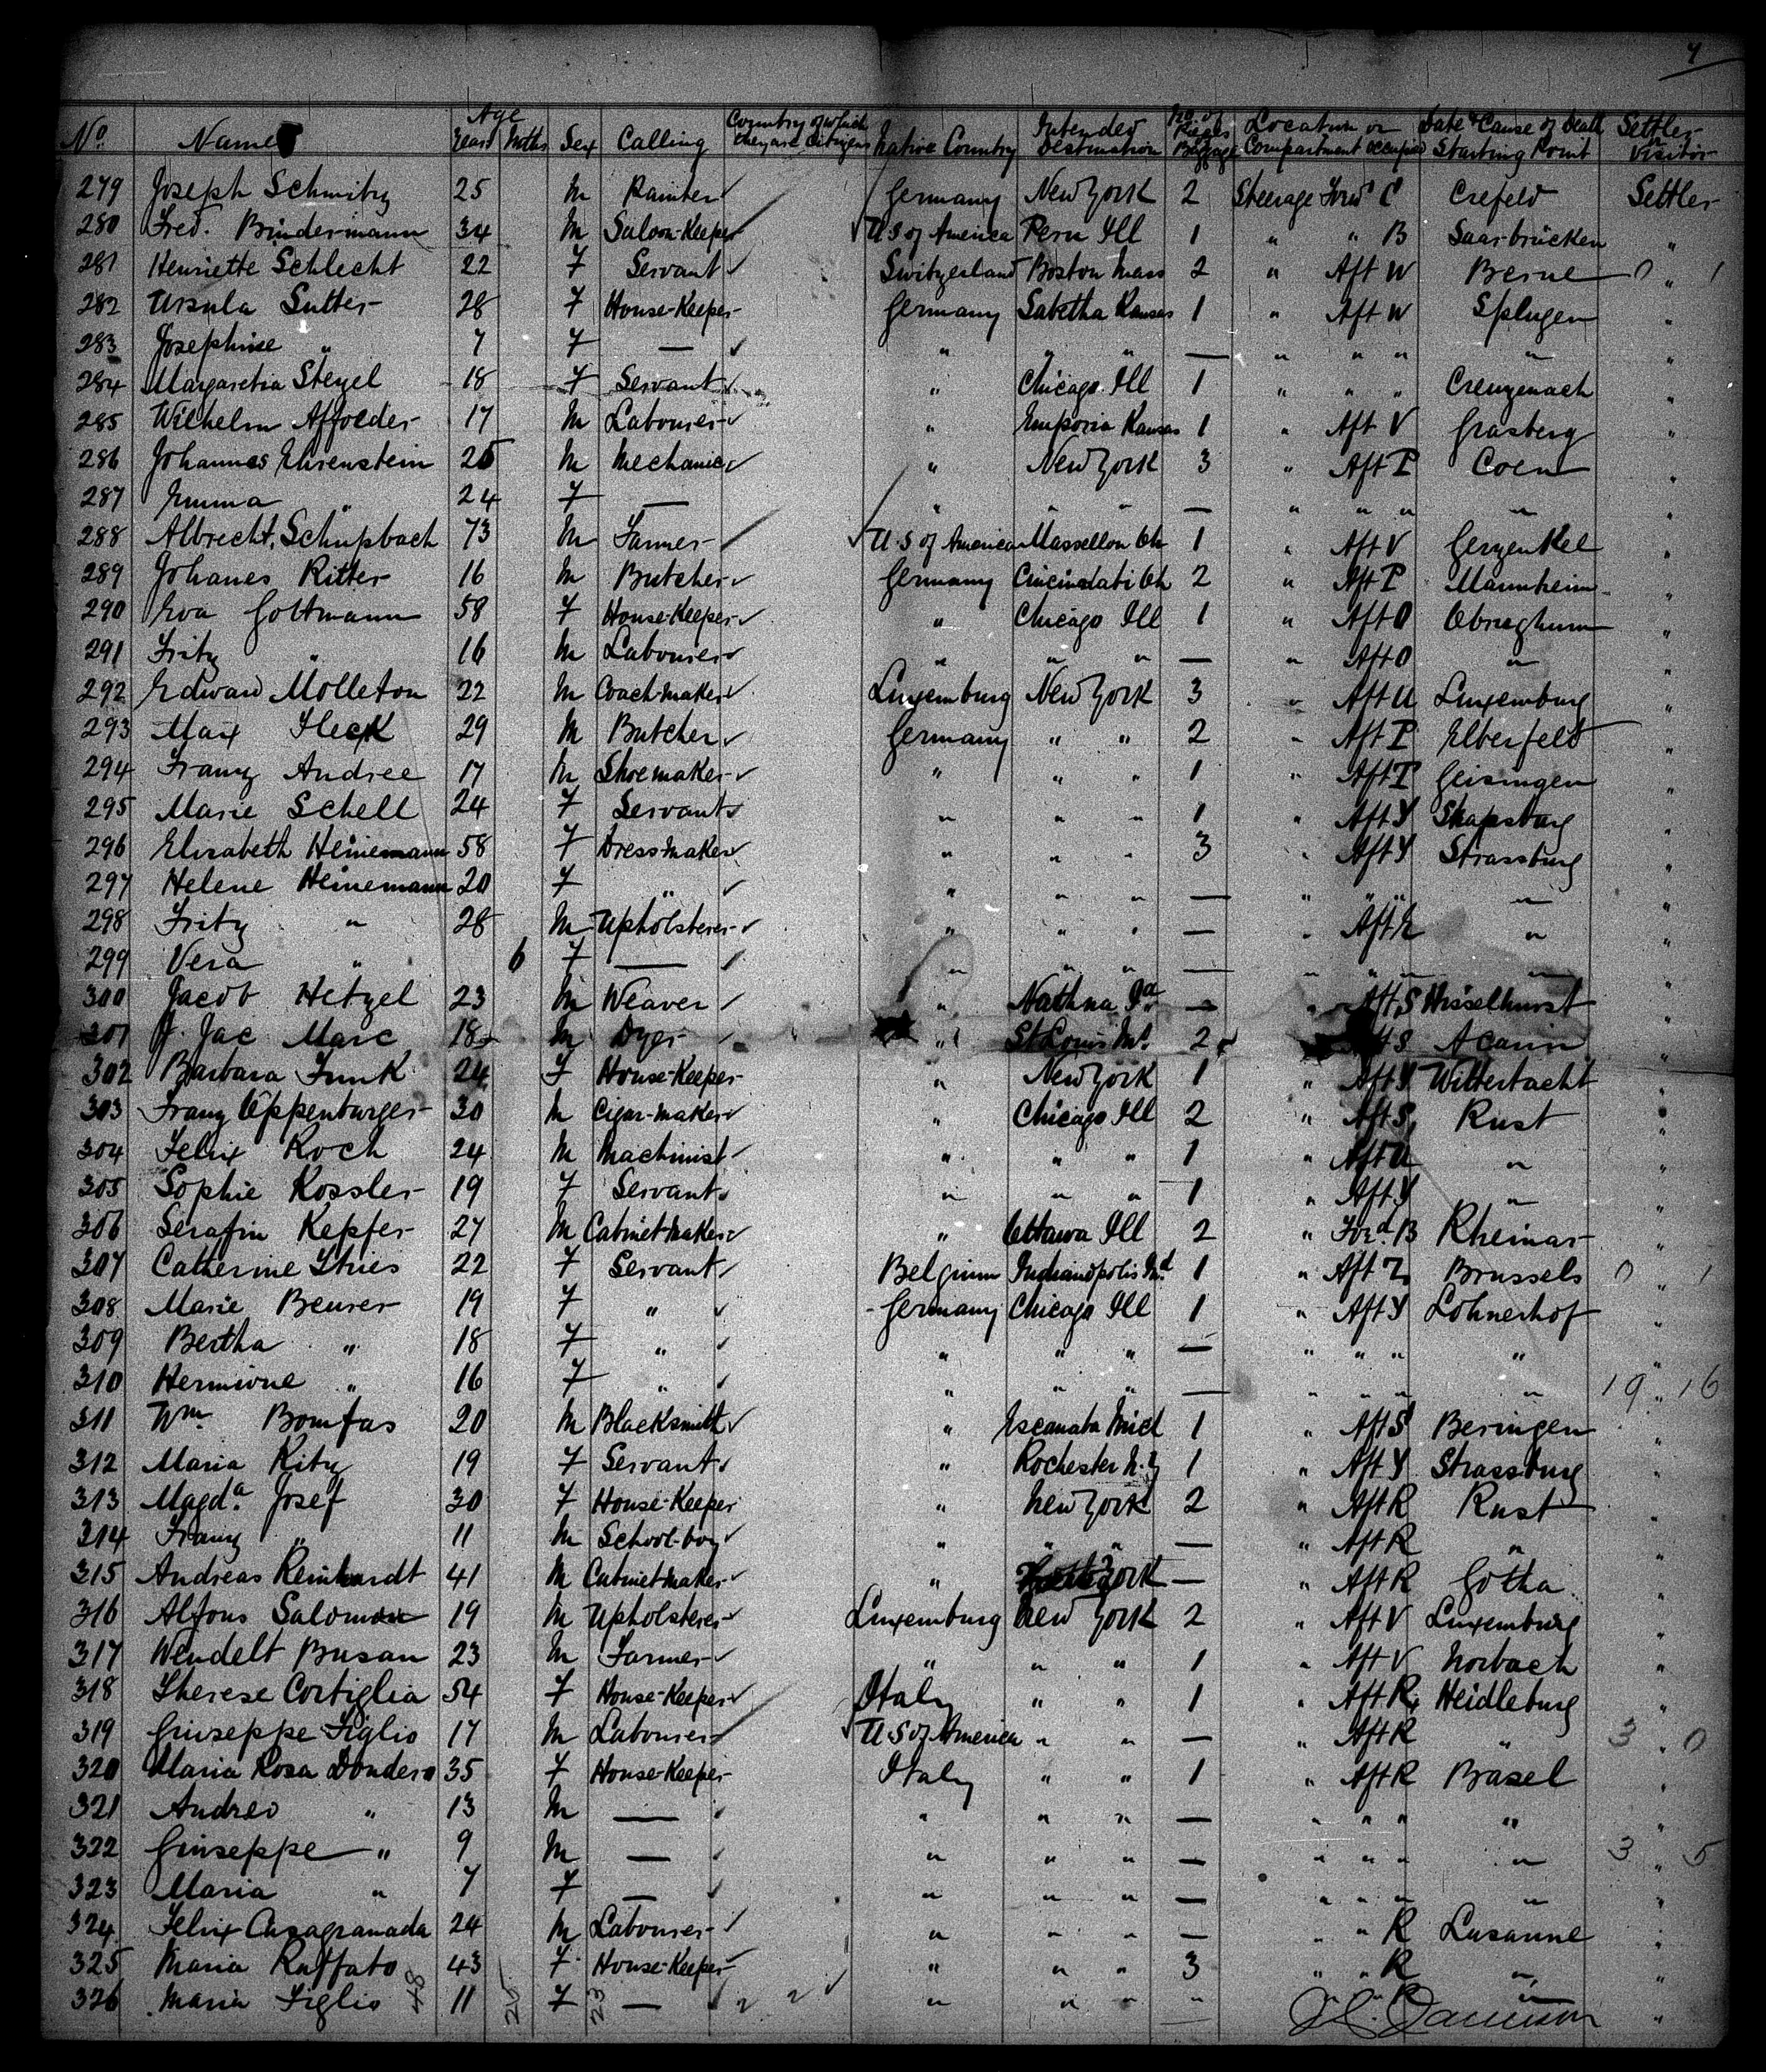 7
No. Names Age Years Mnths Sex Calling Country of which they are Citizens Native Country Intended Destination No. of Pieges Baggage Location or Compartment occupied Date & Cause of Death Starting Point Settler or Visitor
279 Joseph Schmitz 25 M Painter Germany New York 2 Steerage Forwd C Crefeld Settler
280 Fred. Bindermann 34 M Saloon-Keeper U S of America Peru Ill 1 " " B Saarbrücken "
281 Henriette Schlecht 22 F Servant Switzerland Boston Mass 2 " Aft W Berne " 0 1
282 Ursula Sutter 28 F House-Keeper Germany Sabetha Kansas 1 " Aft W Splugen "
283 Josephine " 7 F — " " " — " " " " "
284 Margaretia Stenzel 18 F Servant " Chicago Ill 1 " " " Creuzenach "
285 Wilhelm Affolder 17 M Labourer " Emporia Kansas 1 " Aft V Grasberg "
286 Johannes Ehrenstein 26 M Mechanic " New York 3 " Aft P Coeln "
287 Emma " 24 F — " " " — " " " " "
288 Albrecht Schüpbach 73 M Farmer U.S of America Massellon Oh 1 " Aft V Gerzenkel "
289 Johanes Ritter 16 M Butcher Germany Cincinatati Oh 2 " Aft P Mannheim "
290 Eva Goltmann 58 F House-Keeper " Chicago Ill 1 " Aft O Obrieghum "
291 Fritz " 16 M Labourer " " " — " Aft O " "
292 Edward Molleton 22 M Coach-maker Luxemburg New York 3 " Aft U Luxemburg "
293 Max Fleck 29 M Butcher Germany " " 2 " Aft P Elberfeld "
294 Franz Andree 17 M Shoemaker " " " 1 " Aft P Geisingen "
295 Marie Schell 24 F Servant " " " 1 " Aft Y "
296 Elisabeth Heinemann 58 F Dressmaker " " " 3 " Aft Y Strassburg "
297 Helene Heinemann 20 F " " " " — " " " " "
298 Fritz " 28 M Upholsterer " " " — " Aft R " "
299 Vera " 6 F — " " " — " " " " "
300 Jacob Hetzel 23 M Weaver " Nathna Pa — " Aft S Hisselhurst "
301 J. Jac Marc 18 M Dyer " St Louis Mo. 2 " S Acarin "
302 Barbara Funk 24 F House-Keeper " New York 1 " Aft Y Witterbacht "
303 Franz Oppenburger 30 M Cigar-maker " Chicago Ill 2 " Aft S Rust "
304 Felix Koch 24 M Machinist " " " 1 " Aft U " "
305 Sophie Kossler 19 F Servant " " " 1 " Aft Y " "
306 Serafin Kepfer 27 M Cabinet-maker " Ottawa Ill 2 " Forwd. B Rheinar "
307 Catherine Stries 22 F Servant Belgium Indianopolis Ind 1 " Aft Z Brussels " 0 1
308 Marie Beurer 19 F " Germany Chicago Ill 1 " Aft Y Lohnerhof "
309 Bertha " 18 F " " " " — " " " " "
310 Hermione " 16 F " " " " — " " " " 19 " 16
311 Wm. Bomfas 20 M Blacksmith " Escanaba Mich 1 " Aft S Beringen "
312 Maria Kitz 19 F Servant " Rochester N.Y 1 " Aft Y Strassburg "
313 Magda. Josef 30 F House-Keeper " New York 2 " Aft R Rust "
314 Franz " 11 M School-boy " " " — " Aft R " "
315 Andreas Reinhardt 41 M Cabinet-maker " York — " Aft R Gotha "
316 Alfons Salomon 19 M Upholsterer Luxemburg New York 2 " Aft V Luxemburg "
317 Wendelt Busan 23 M Farmer " " " 1 " Aft V Norbach "
318 Therese Cortiglia 54 F House-Keeper Italy " " 1 " Aft R Heidleburg "
319 Giuseppe Figlio 17 M Labourer U S of America " " — " Aft R " 3 " 0
320 Maria Rosa Dondero 35 F House-Keeper Italy " " 1 " Aft R Basel "
321 Andreo " 13 M — " " " — " " " " "
322 Giuseppe " 9 M — " " " — " " " " 3 " 5
323 Maria " 7 F — " " " — " " " " "
324 Felix Casagranada 24 M Labourer " " " — " " R Lusanne "
325 Maria Raffato 43 F House-Keeper " " " 3 " " R " "
326 Maria Figlio 11 F — " " " " " " R " "
48 25 23